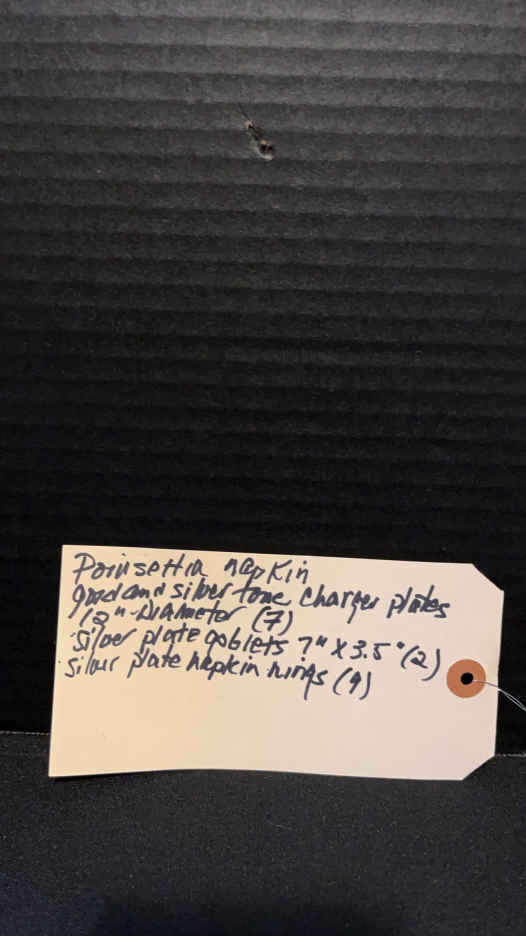 Poinsettia napkin
gold and silver tone charger plates
12"-Diameter (7)
Silver plate goblets 7" X 3.5" (2)
Silver plate napkin rings (9)